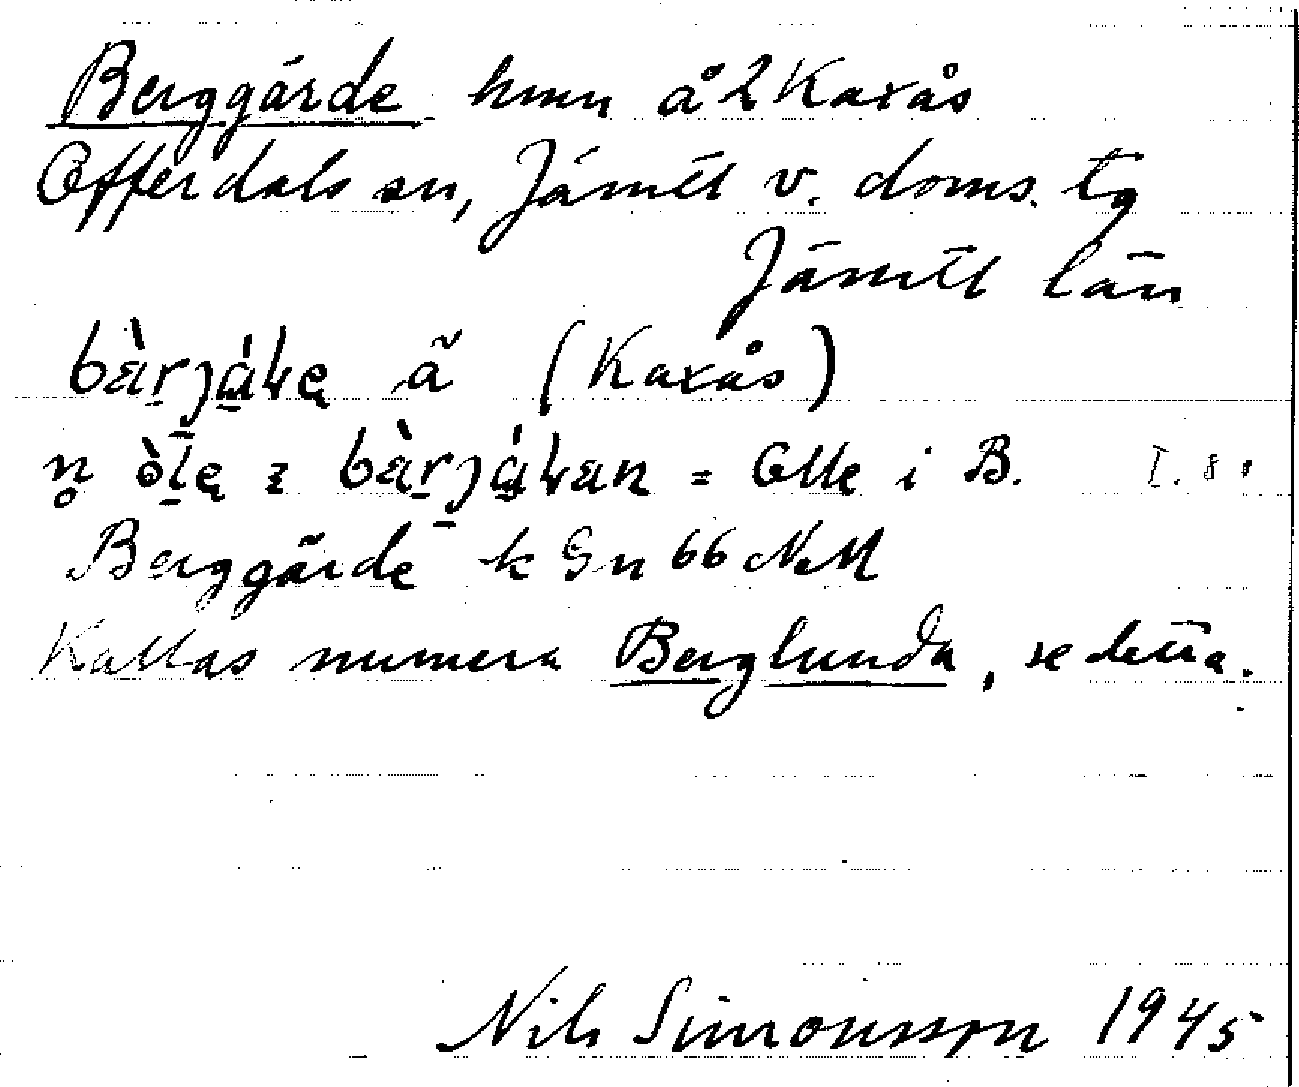 Berggärde hmn å 2 Kaxås
Offerdals sn, Jämtl v. doms. tg
Jämtl län
(Kaxås)
= Olle i B.
Berggärde k Gn 66 NM
Kallas numera Berglunda, se detta.
Nils Simonsson 1945